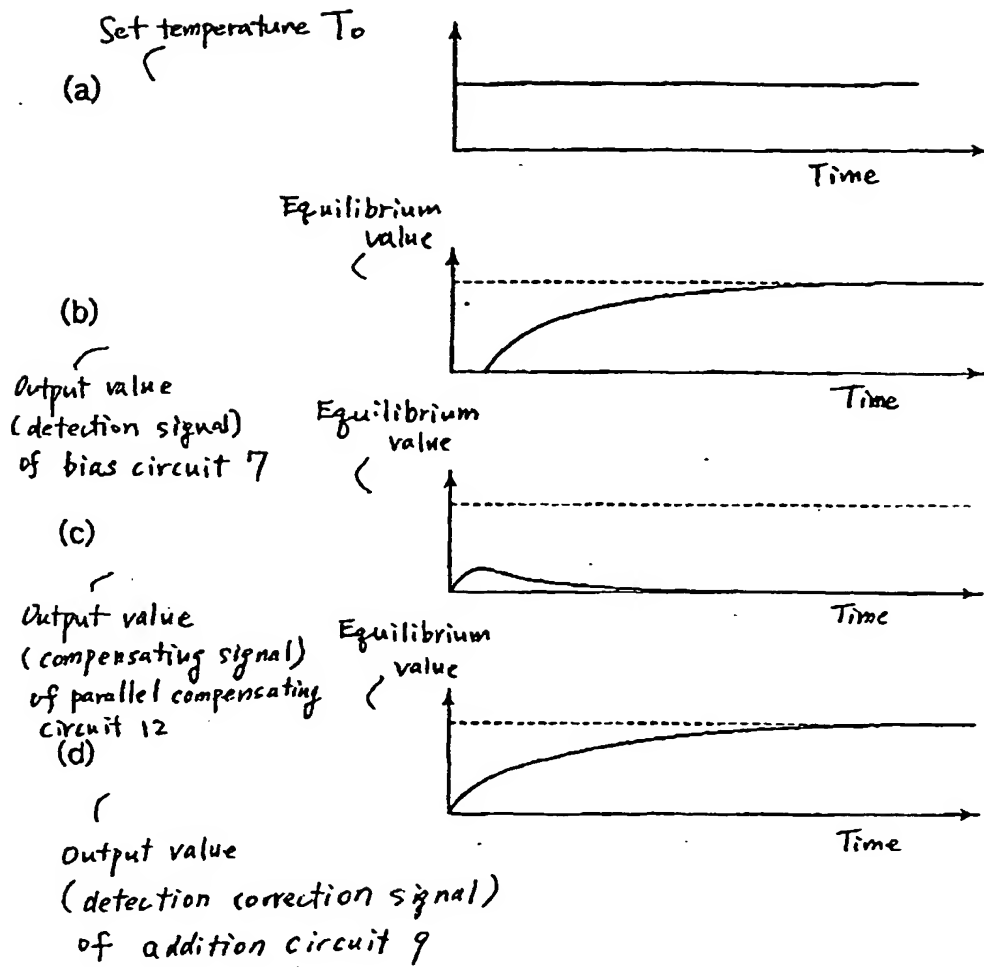 Set temperature To
(a)
Time
Equilibrium
value
(b)
Output value
(detection signal)
of bias circuit 7
Time
Equilibrium
value
(c)
Output value
(compensating signal)
of parallel compensating
circuit 12
Time
Equilibrium
value
(d)
Output value
(detection correction signal)
of addition circuit 9
Time